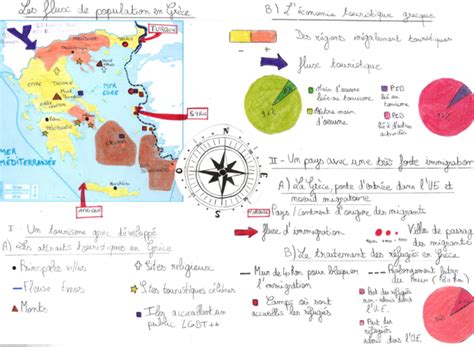 Les flux de population en Grèce
TURQUIE
SYRIE
AFRIQUE
MER MÉDITERRANÉE
MER ÉGÉE
I Un tourisme grec développé
A) Les attraits touristiques en Grèce
Principales villes
Sites religieux
Sites touristiques célèbres
Monts
Iles accueillant un public LGBT++
B) L'économie touristique grecque
Des régions inégalement touristiques
flux touristique
Main d'œuvre liée au tourisme
Autre main d'œuvre
PIB lié au tourisme
PIB lié à d'autres activités
II - Un pays avec une très forte immigration
A) La Grèce, porte d'entrée dans l'UE et
Pays / continent d'origine des migrants
flux d'immigration
Villes de passage des migrants
B) Le traitement des réfugiés en Grèce
Mur de béton pour bloquer l'immigration
Prolongement
du mur
Camps où sont accueillis les réfugiés
Part des réfugiés
dans l'UE
Part des réfugiés